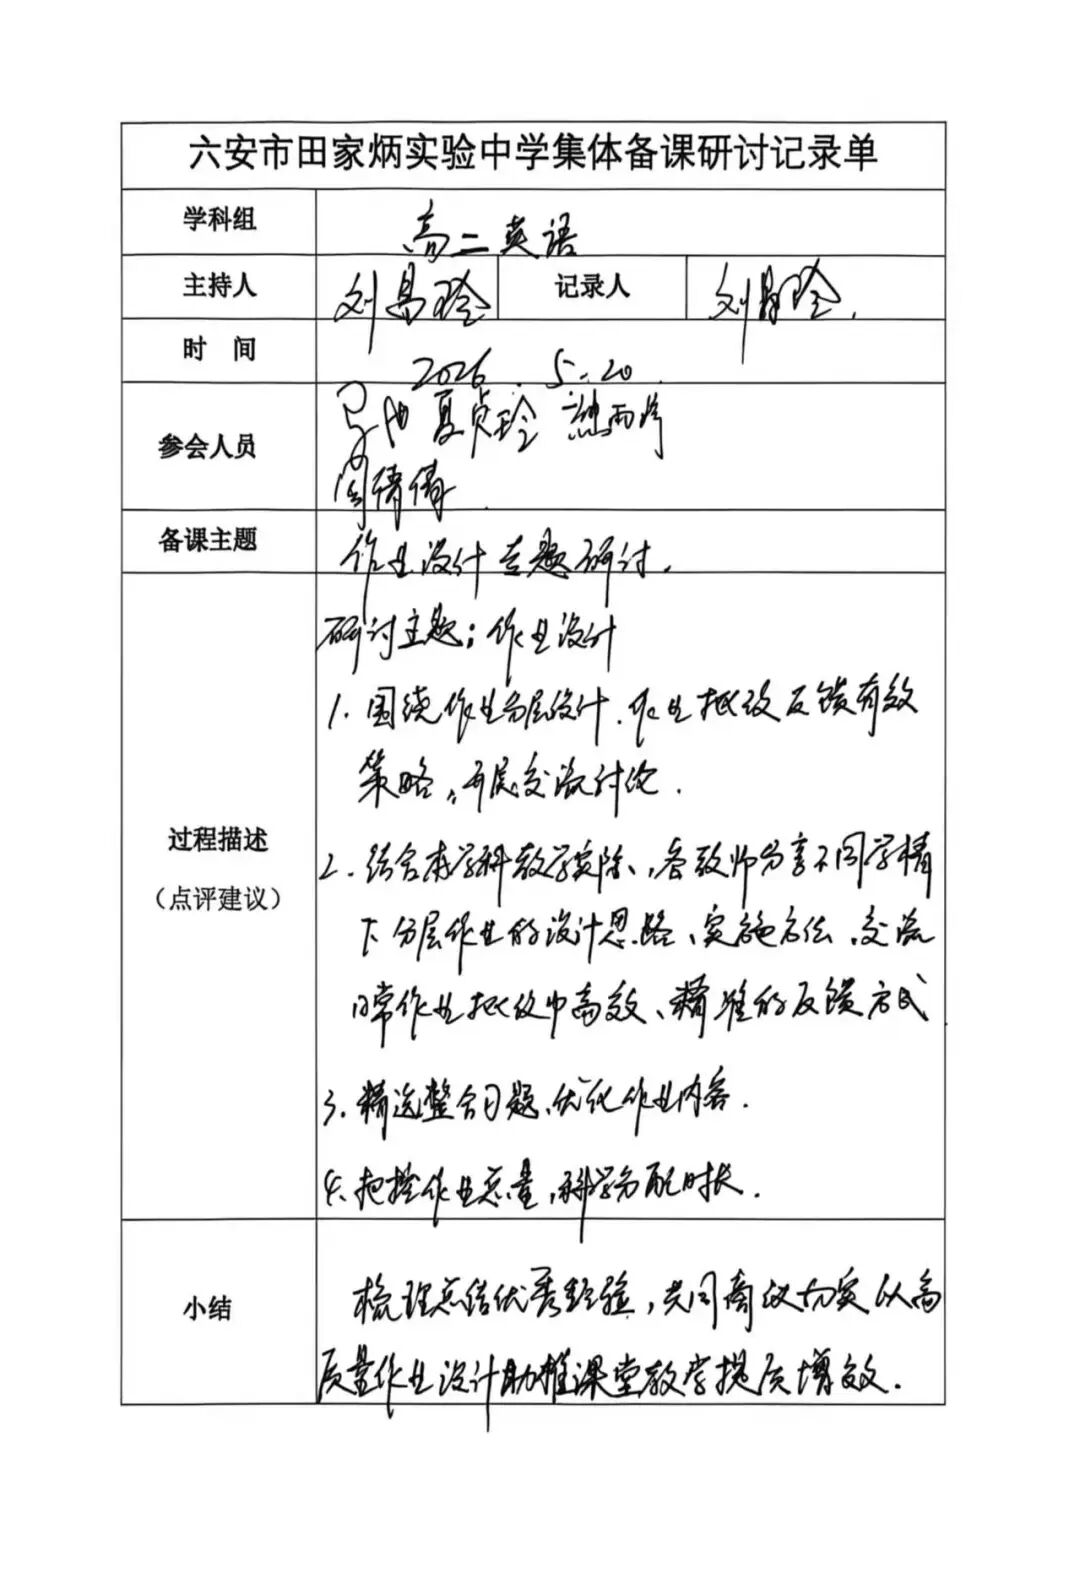 六安市田家炳实验中学集体备课研讨记录单
学科组 高二英语
主持人 刘昌玲 记录人 刘昌玲.
时 间 2026.5.20.
参会人员 夏贞玲
周倩倩.
备课主题 作业设计专题研讨.
研讨主题:作业设计
1. 围绕作业分层设计、作业批改反馈有效
策略,开展交流讨论.
过程描述
(点评建议)
2. 结合本学科教学实际,各教师分享不同学情
下分层作业的设计思路、实施方法,交流
日常作业批改中高效、精准的反馈方式
3. 精选整合习题、优化作业内容.
4. 把控作业总量,科学分配时长.
小结
梳理总结优秀经验,共同商议切实以高
质量作业设计助推课堂教学提质增效.